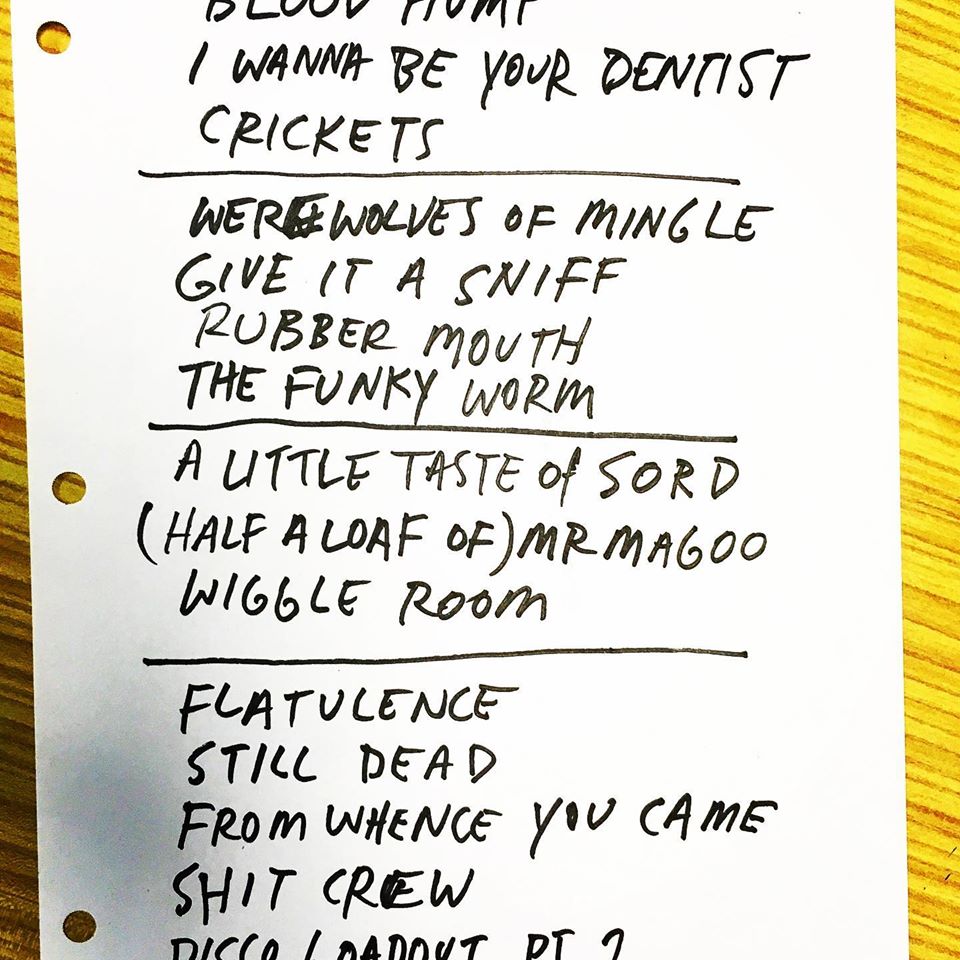 BLOOD HUMP
I WANNA BE YOUR DENTIST
CRICKETS
WEREWOLVES OF MINGLE
GIVE IT A SNIFF
RUBBER MOUTH
THE FUNKY WORM
A LITTLE TASTE of SORD
(HALF A LOAF OF) MR MAGOO
WIGGLE ROOM
FLATULENCE
STILL DEAD
FROM WHENCE YOU CAME
SHIT CREW
DISCO LOADOUT PT 2